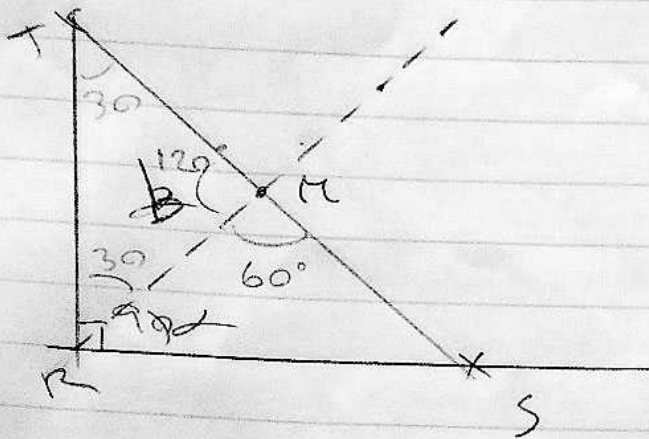 T
30
120°
M
B
60°
30
R
S